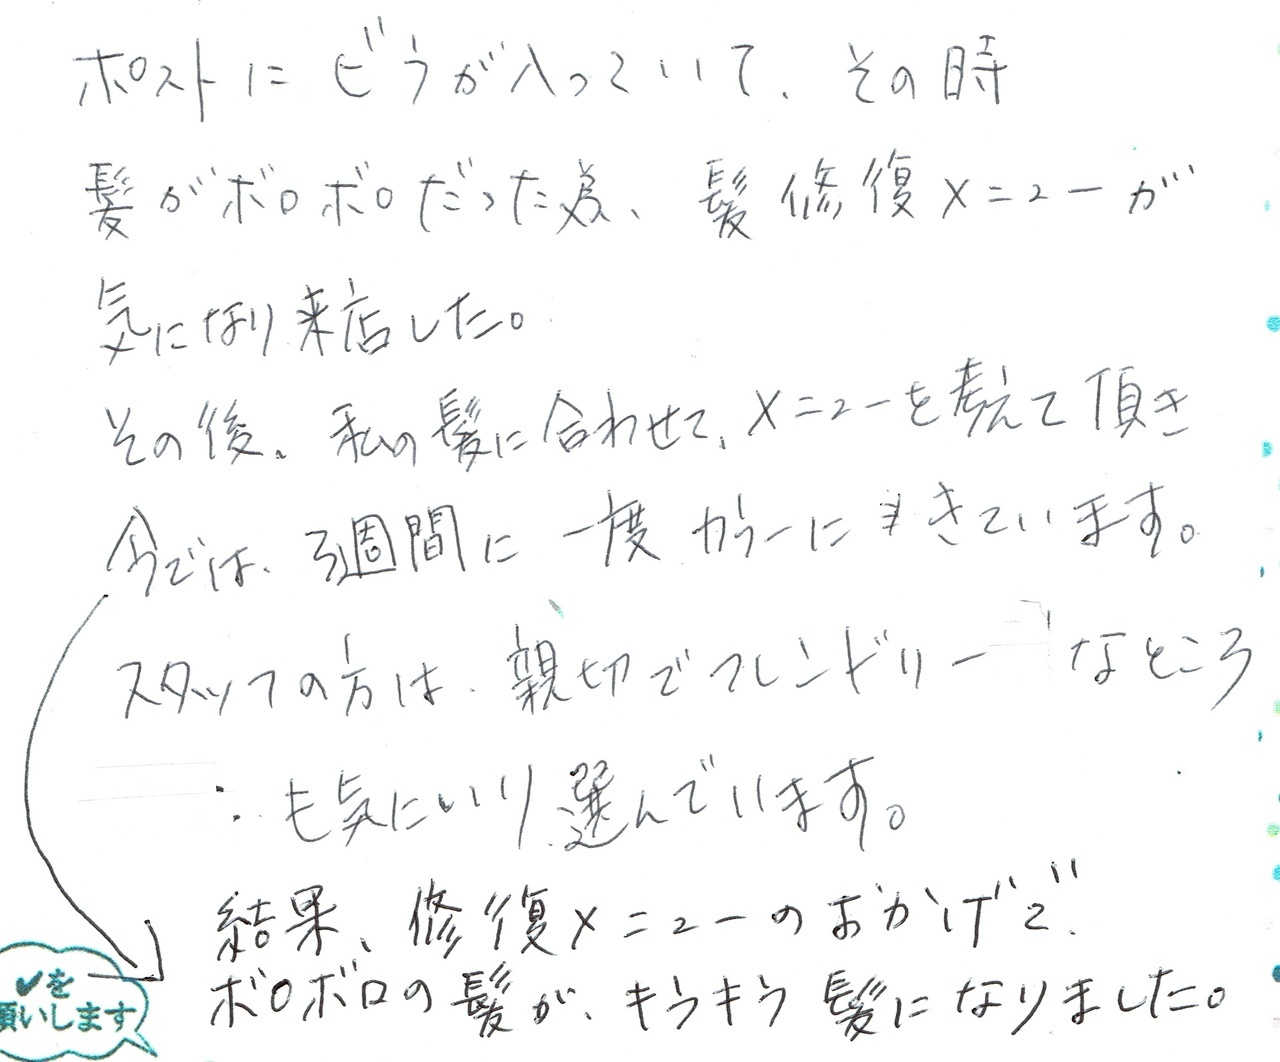 ポストにビラが入っていて、その時
髪がボロボロだった為、髪修復メニューが
気になり来店した。
その後、私の髪に合わせて、メニューを考えて頂き
今では、3週間に一度カラーにきています。
スタッフの方は、親切でフレンドリーなところ
も気にいり選んでいます。
結果、修復メニューのおかげで、
ボロボロの髪が、キラキラ髪になりました。
✓を
願いします